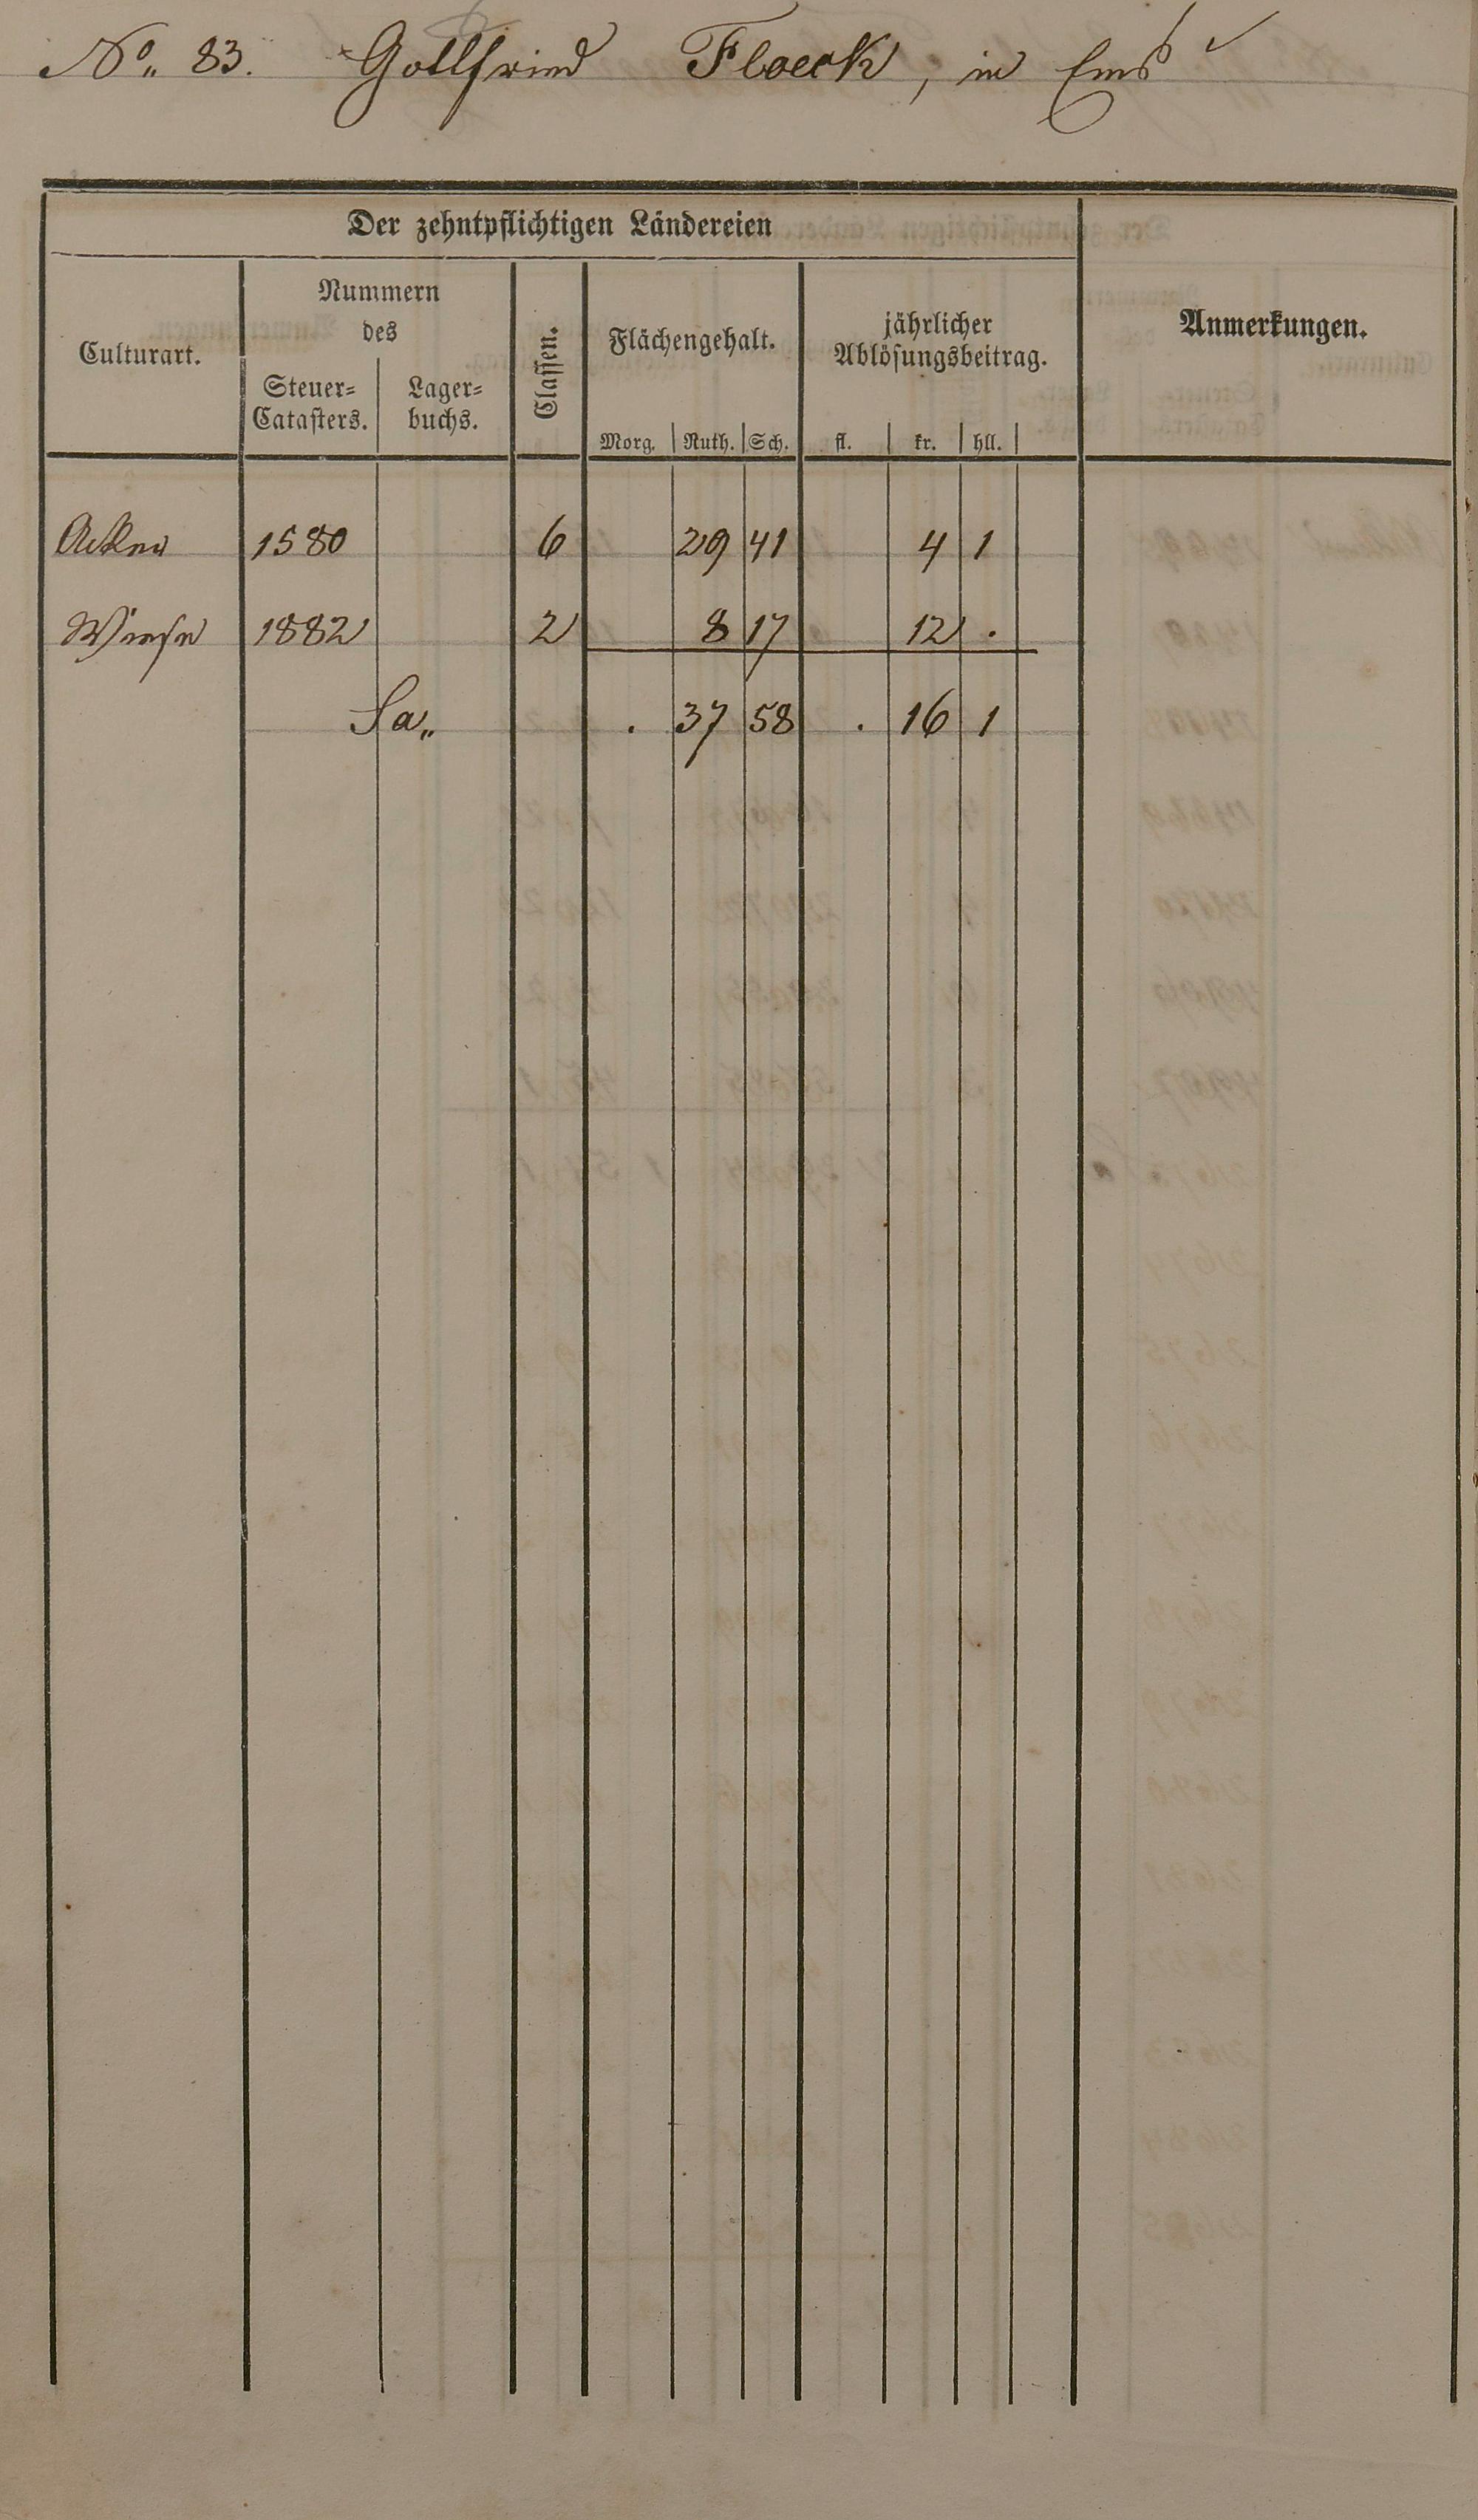 No. 83. Gottfried Floeck, in Ems
Der zehntpflichtigen Ländereien
Culturart.
Nummern
des
Steuer-
Catasters.
Lager-
buchs.
Classen.
Flächengehalt.
Morg. Ruth. Sch.
jährlicher
Ablösungsbeitrag.
fl. kr. hll.
Anmerkungen.
Acker 1580 6 29 41 4 1
Wiese 1882 2 8 17 12 .
Sa. . 37 58 . 16 1